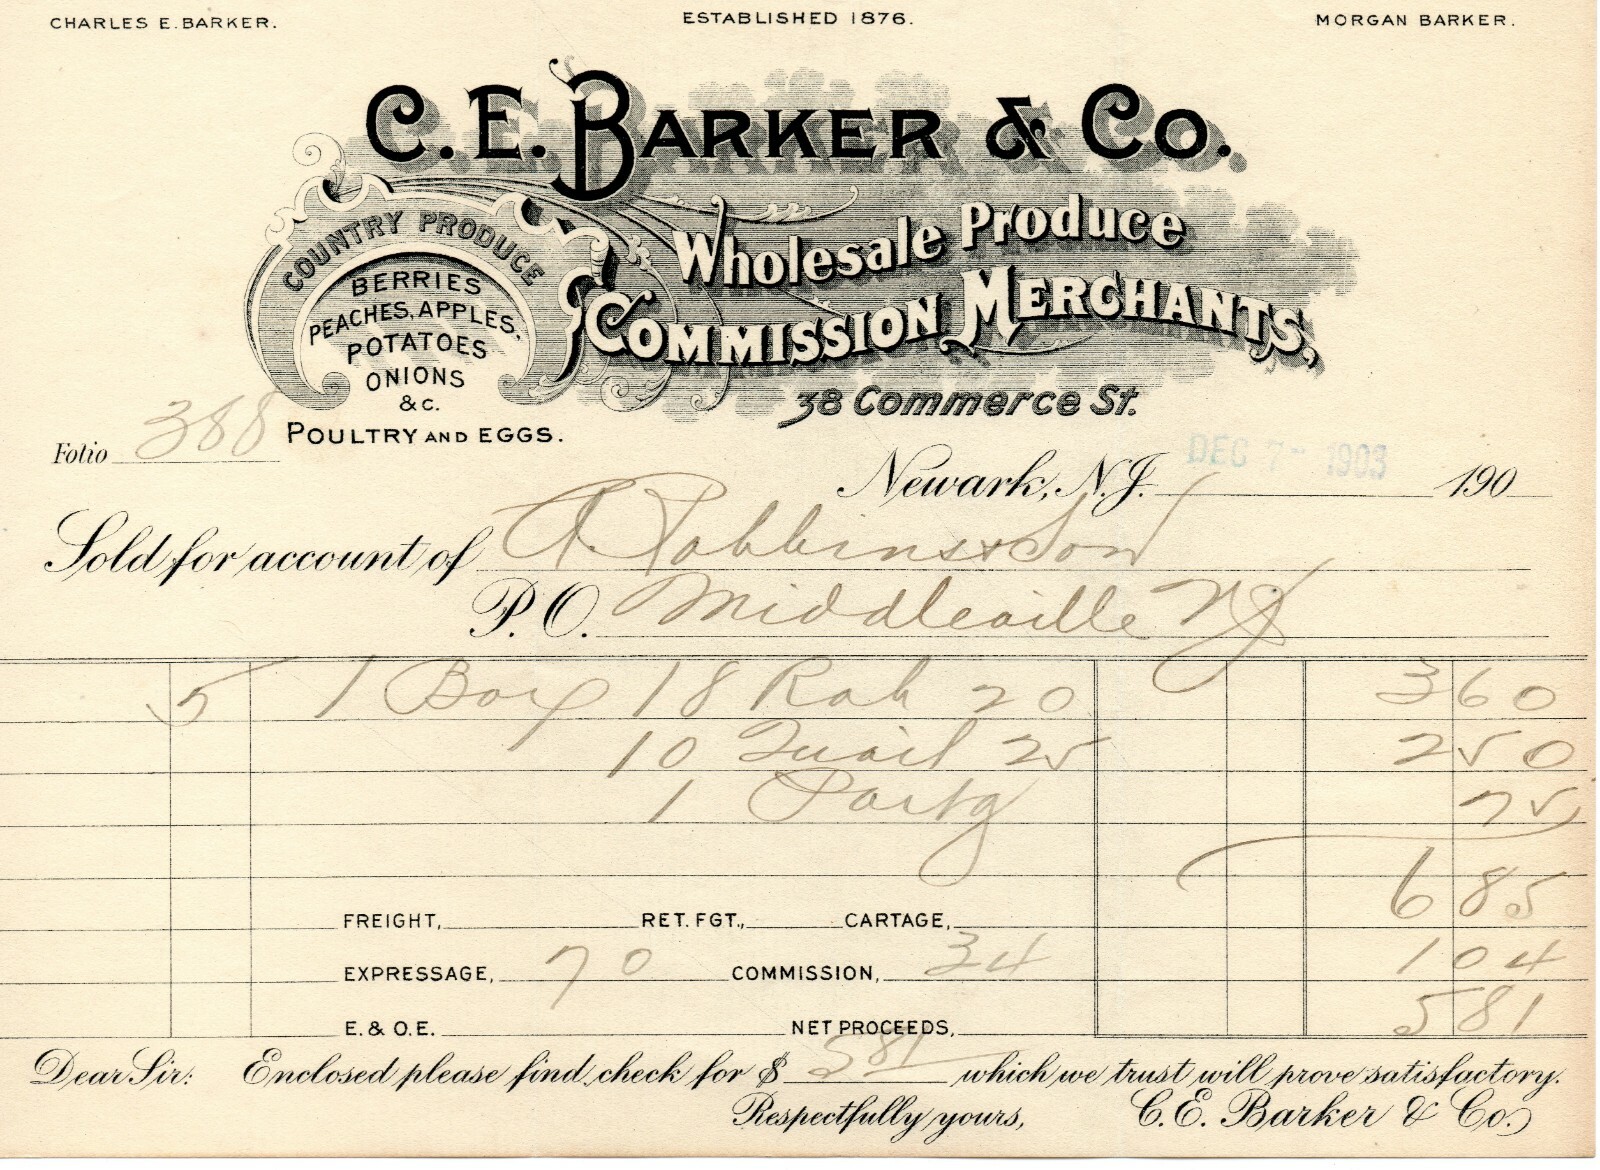 CHARLES E. BARKER. ESTABLISHED 1876. MORGAN BARKER.
C. E. BARKER & CO.
Wholesale Produce
COMMISSION MERCHANTS,
38 Commerce St.
COUNTRY PRODUCE
BERRIES
PEACHES, APPLES,
POTATOES
ONIONS
&C.
POULTRY AND EGGS.
Folio 388
Newark, N.J. DEC 7- 1903 190
Sold for account of A. Robbins & Son
P. O. Middleville NJ
5 1 Box 18 Rab 20 3 60
10 Quail 25 2 50
1 Partg 75
6 85
FREIGHT, RET. FGT., CARTAGE,
EXPRESSAGE, 70 COMMISSION, 34 1 04
E. & O. E. NET PROCEEDS, 5 81
Dear Sir: Enclosed please find check for $ 5 81 which we trust will prove satisfactory.
Respectfully yours, C. E. Barker & Co.